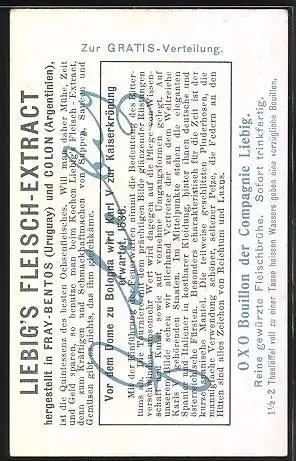 Zur GRATIS-Verteilung.
LIEBIG'S FLEISCH-EXTRACT
hergestellt in FRAY-BENTOS (Uruguay) und COLON (Argentinien),
ist die Quintessenz des besten Ochsenfleisches. Will man daher Mühe, Zeit
und Geld sparen, so benutze man beim Kochen Liebig's Fleisch-Extract,
denn zum Kräftigen und Schmackhaftmachen von Suppen, Saucen und
Gemüsen gibt es nichts, das ihm gleichkäme.
Vor dem Dome zu Bologna wird Karl V. zur Kaiserkrönung
erwartet, 1530.
Mit der Einführung der Feuerwaffen nimmt die Bedeutung des Ritter-
tums ab, die Turnierlust und die prächtigen glänzender Rüstungen
verschwinden, umsomehr Wert wird dagegen auf die Pflege von Wissen-
schaft und Kunst, sowie auf vornehme Umgangsformen gelegt. Auf
unserem Bilde sehen wir die einzelnen Vertreter der zu dem Weltreiche
Karls V. gehörenden Staaten. Im Mittelpunkte stehen die eleganten
Spanier und Italiener in kostbarer Kleidung, hinter ihnen deutsche und
österreichische Fürsten. Besonders charakteristisch für die Zeit ist der
kurze spanische Mantel. Die teilweise geschlitzten Pluderhosen, die
mannigfaltige Verwendung schöner, seltener Pelze, die Federn an den
Hüten sind alles Zeichen von Reichtum und Luxus.
OXO Bouillon der Compagnie Liebig.
Reine gewürzte Fleischbrühe. Sofort trinkfertig.
1½-2 Theelöffel voll zu einer Tasse heissen Wassers geben eine vorzügliche Bouillon.